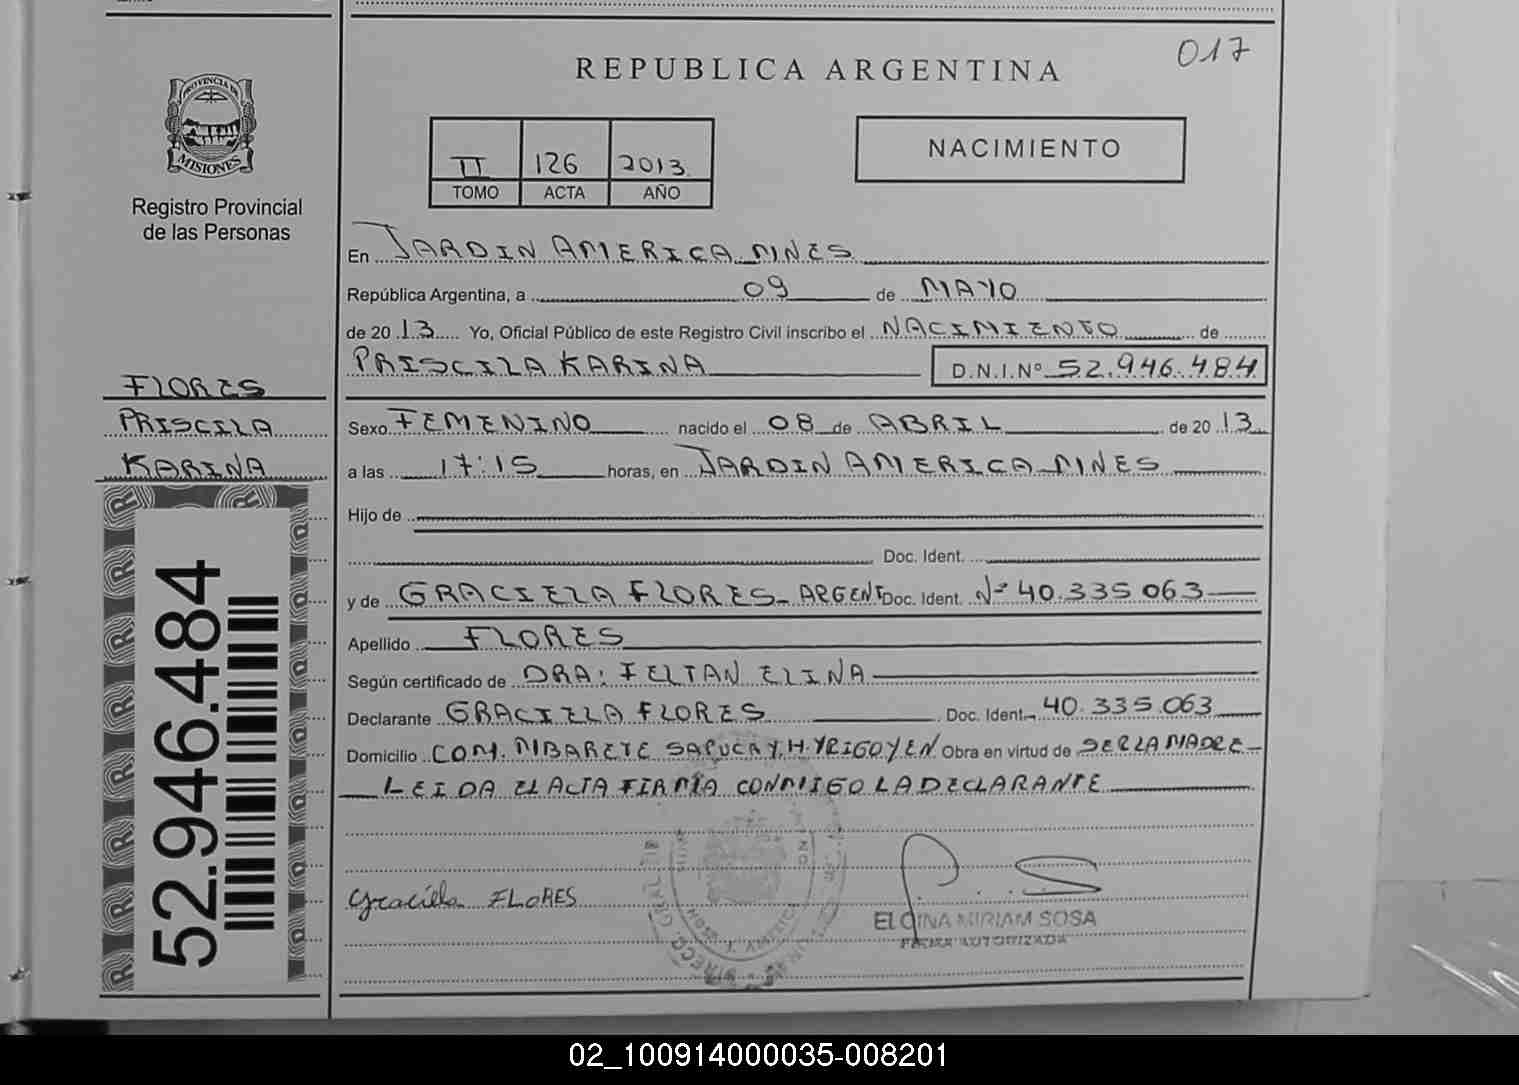 017
REPUBLICA ARGENTINA
PROVINCIA DE
MISIONES
Registro Provincial
de las Personas
II 126 2013
TOMO ACTA AÑO
NACIMIENTO
En JARDIN AMERICA MNES
República Argentina, a 09 de MAYO
de 2013 Yo, Oficial Público de este Registro Civil inscribo el NACIMIENTO de
PRISCILA KARINA D.N.I.Nº 52.946.484
FLORES
PRISCILA
KARINA
Sexo FEMENINO nacido el 08 de ABRIL de 2013
a las 17:15 horas, en JARDIN AMERICA MNES
Hijo de
Doc. Ident.
y de GRACIELA FLORES - ARGENT Doc. Ident. Nº 40.335.063
Apellido FLORES
Según certificado de DRA: FELTAN ELINA
Declarante GRACIELA FLORES Doc. Ident. 40.335.063
Domicilio COM. MBARETE SAPUCAY, H. YRIGOYEN Obra en virtud de SER LA MADRE
LEIDA EL ACTA FIRMA CONMIGO LA DECLARANTE
Graciela FLORES
ELGINA MIRIAM SOSA
FIRMA AUTORIZADA
52.946.484
02_100914000035-008201